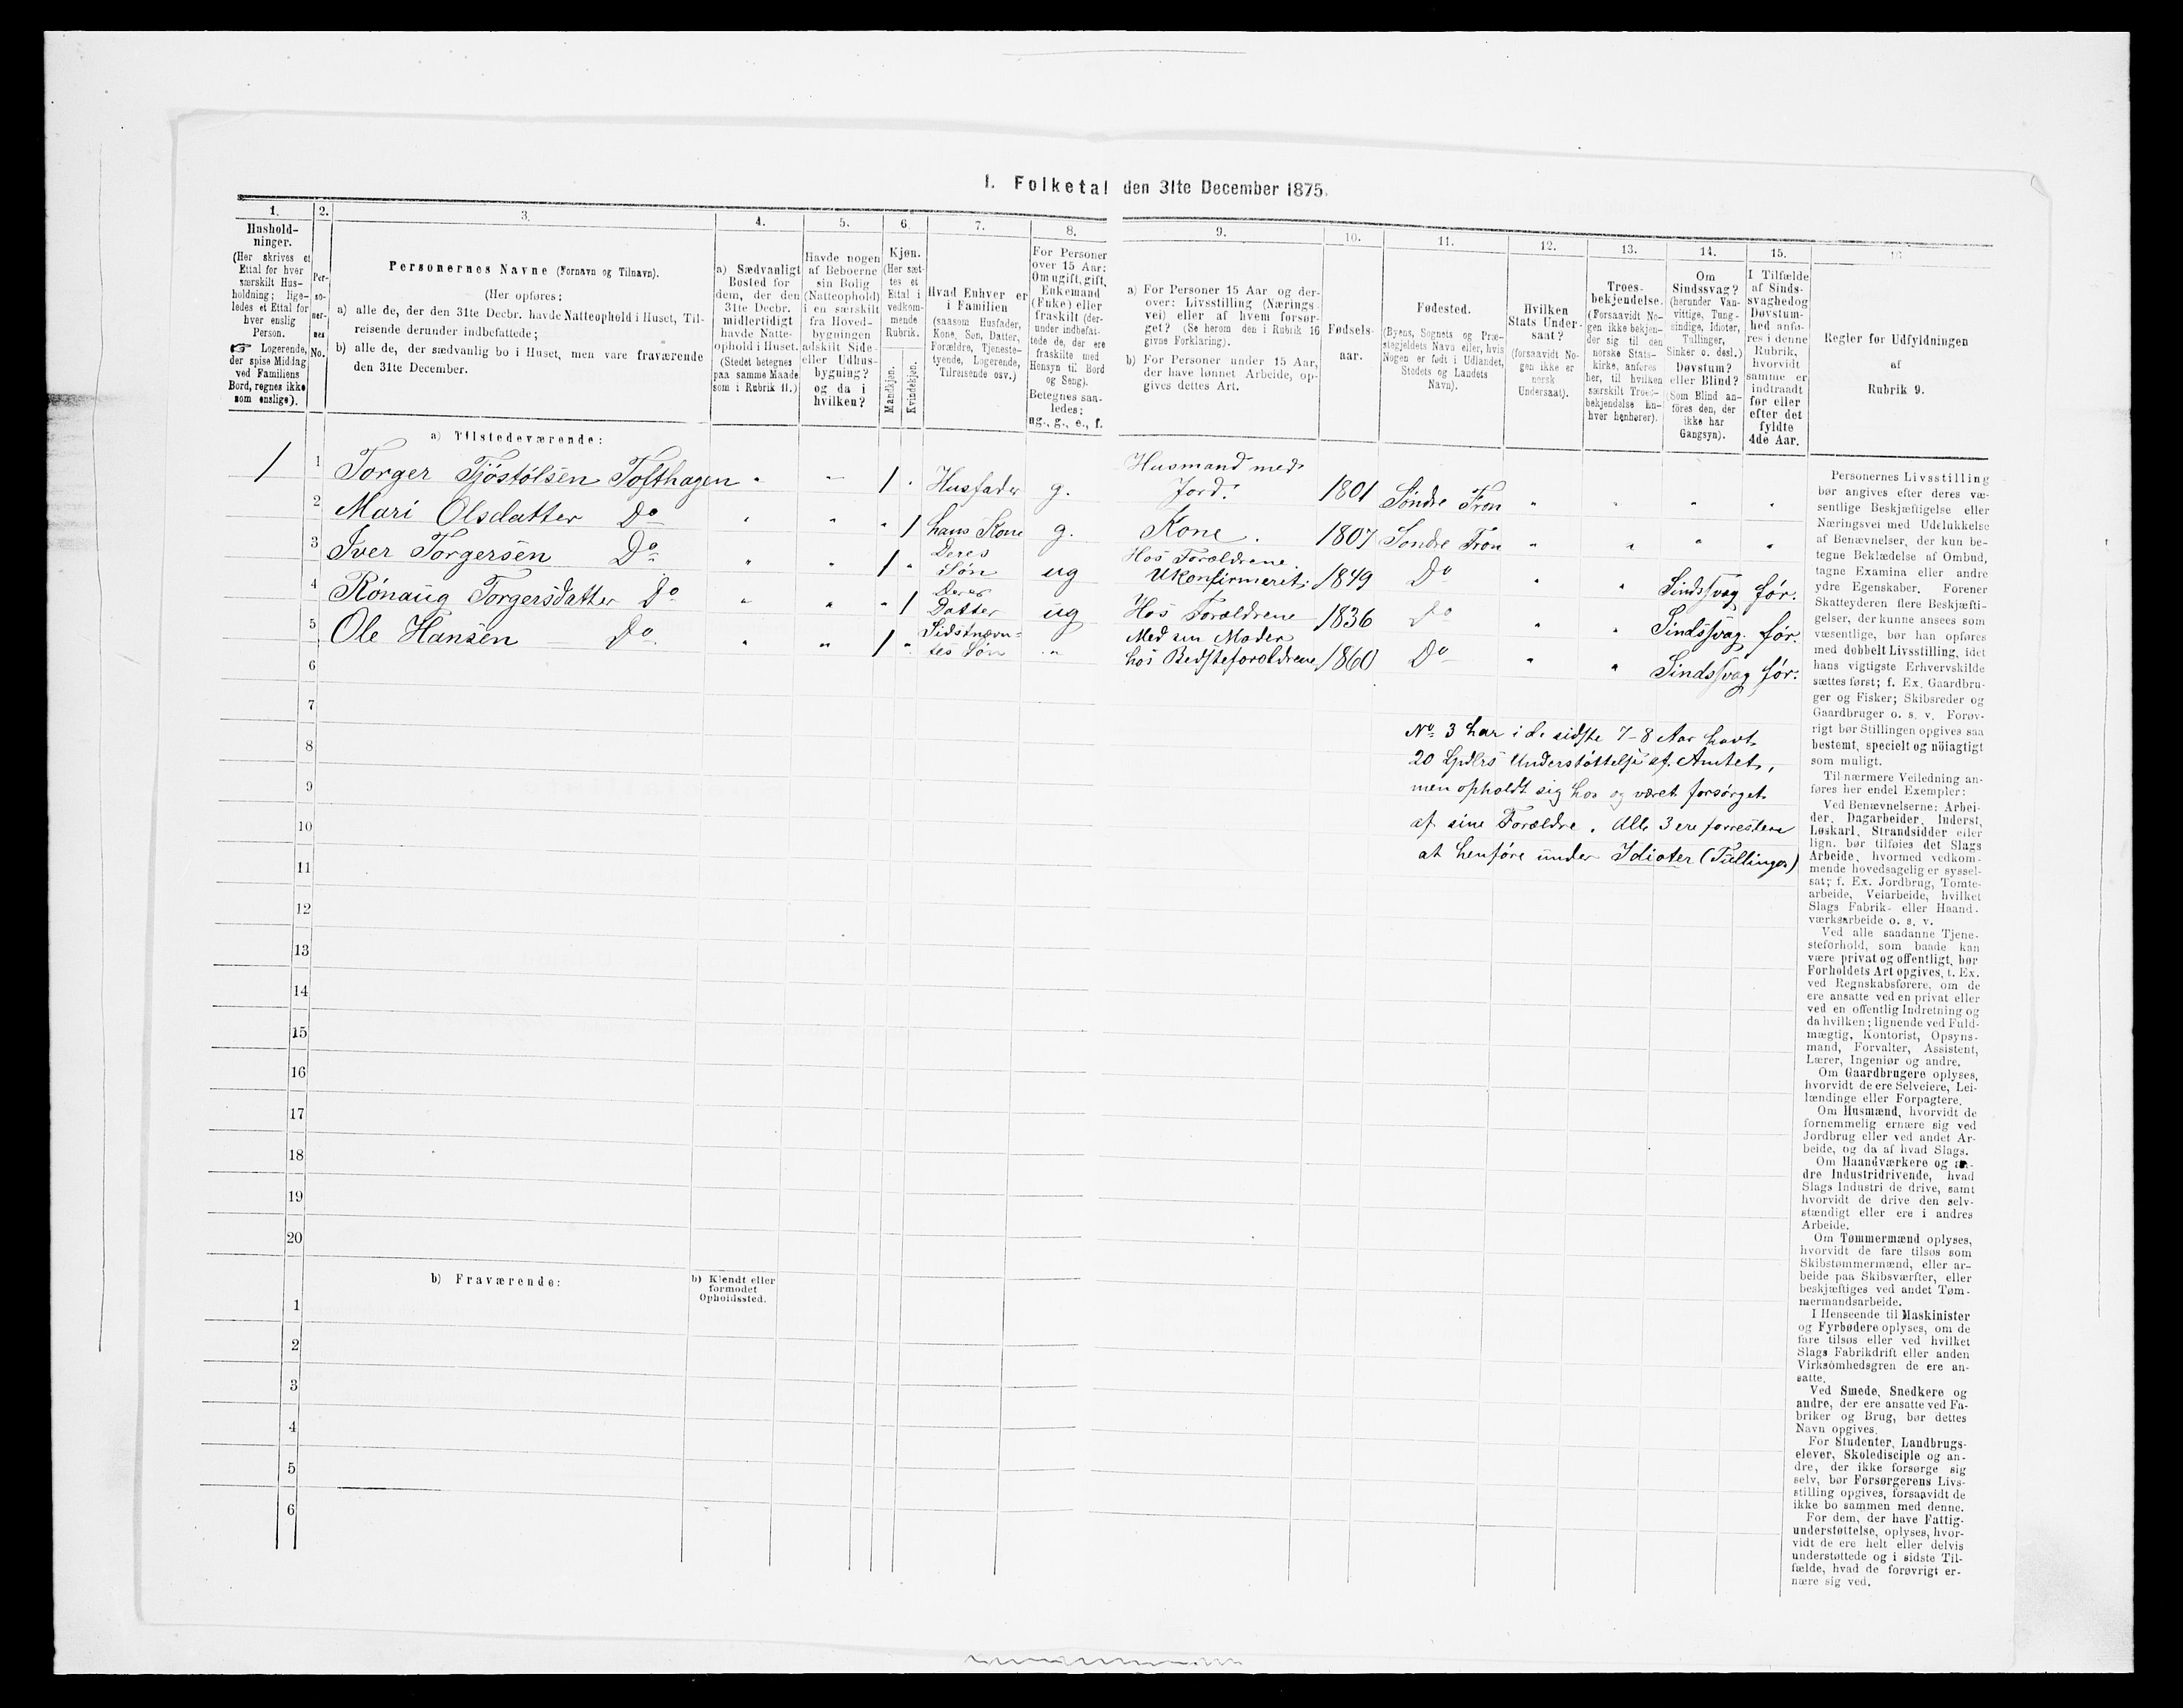 I. Folketal den 31te December 1875.
1.
Hushold-
ninger.
(Her skrives et
Ettal for hver
særskilt Hus-
holdning; lige-
ledes et Ettal for
hver enslig
Person.
☞ Logerende,
der spise Middag
ved Familiens
Bord, regnes ikke
som enslige).
2.
Per-
so-
ner-
nes
No.
3.
Personernes Navne (Fornavn og Tilnavn).
(Her opføres:
a) alle de, der den 31te Decbr. havde Natteophold i Huset, Til-
reisende derunder indbefattede;
b) alle de, der sædvanlig bo i Huset, men vare fraværende
den 31te December.
4.
a) Sædvanligt
Bosted for
dem, der den
31te Decbr.
midlertidigt
havde Natte-
ophold i Huset.
(Stedet betegnes
paa samme Maade
som i Rubrik 11.)
5.
Havde nogen
af Beboerne
sin Bolig
(Natteophold)
i en særskilt
fra Hoved-
bygningen
adskilt Side-
eller Udhus-
bygning?
og da i
hvilken?
6.
Kjøn.
(Her sæt-
tes et
Ettal i
vedkom-
mende
Rubrik.
Mandkjøn.
Kvindekjøn.
7.
Hvad Enhver er
i Familien
(saasom Husfader,
Kone, Søn, Datter,
Forældre, Tjeneste-
tyende, Logerende,
Tilreisende osv.)
8.
For Personer
over 15 Aar:
Om ugift, gift,
Enkemand
(Enke) eller
fraskilt (der-
under indbefat-
tede de, der ere
fraskilte med
Hensyn til Bord
og Seng).
Betegnes saa-
ledes:
ug., g., e., f.
9.
a) For Personer 15 Aar og der-
over: Livsstilling (Nærings-
vei) eller af hvem forsør-
get? (Se herom den i Rubrik 16
givne Forklaring).
b) For Personer under 15 Aar,
der have lønnet Arbeide, op-
gives dettes Art.
10.
Fødsels-
aar.
11.
Fødested.
(Byens, Sognets og Præ-
stegjeldets Navn eller, hvis
Nogen er født i Udlandet,
Stedets og Landets
Navn).
12.
Hvilken
Stats Under-
saat?
(forsaavidt No-
gen ikke er
norsk
Undersaat).
13.
Troes-
bekjendelse.
(Forsaavidt No-
gen ikke bekjen-
der sig til den
norske Stats-
kirke, anføres
her, til hvilken
særskilt Troes-
bekjendelse En-
hver henhører).
14.
Om
Sindssvag?
(herunder Van-
vittige, Tung-
sindige, Idioter,
Tullinger,
Sinker o. desl.)
Døvstum?
eller Blind?
(Som Blind an-
føres den, der
ikke har
Gangsyn).
15.
I Tilfælde
af Sinds-
svaghed og
Døvstum-
hed anfø-
res i denne
Rubrik,
hvorvidt
samme er
indtraadt
før eller
efter det
fyldte
4de Aar.
16
Regler for Udfyldningen
af
Rubrik 9.
a) Tilstedeværende:
1 1 Torger Tjøstølsen Tofthagen " " 1 " Husfader g. Husmand med
Jord. 1801 Søndre Fron " " " "
2 Mari Olsdatter Do " " " 1 hans Kone g. Kone. 1807 Søndre Fron " " " "
3 Iver Torgersen Do " " 1 " Deres
Søn ug Hos Forældrene.
Ukonfirmeret. 1849 Do " " Sindssvag før.
4 Rønaug Torgersdatter Do " " " 1 Deres
Datter ug Hos Forældrene 1836 Do " " Sindssvag. før.
5 Ole Hansen Do " " 1 " Sidstnævn-
tes Søn " Med sin Moder
hos Bedsteforældrene 1860 Do " " Sindssvag før.
6
7
8
9
10
11
12
13
14
15
16
17
18
19
20
No 3 har i de sidste 7-8 Aar havt
20 Spdlrs Understøttelse af Amtet,
men opholdt sig hos og været forsørget
af sine Forældre. Alle 3 ere forresten
at henføre under Idioter (Tullinger)
b) Fraværende:
b) Kjendt eller
formodet
Opholdssted.
1
2
3
4
5
6
Personernes Livsstilling
bør angives efter deres væ-
sentlige Beskjæftigelse eller
Næringsvei med Udelukkelse
af Benævnelser, der kun be-
tegne Beklædelse af Ombud,
tagne Examina eller andre
ydre Egenskaber. Forener
Skatteyderen flere Beskjæfti-
gelser, der kunne ansees som
væsentlige, bør han opføres
med dobbelt Livsstilling, idet
hans vigtigste Erhvervskilde
sættes først; f. Ex. Gaardbru-
ger og Fisker; Skibsreder og
Gaardbruger o. s. v. Forøv-
rigt bør Stillingen opgives saa
bestemt, specielt og nöiagtigt
som muligt.
Til nærmere Veiledning an-
føres her endel Exempler:
Ved Benævnelserne: Arbei-
der, Dagarbeider, Inderst,
Løskarl, Strandsidder eller
lign. bør tilføies det Slags
Arbeide, hvormed vedkom-
mende hovedsagelig er syssel-
sat; f. Ex. Jordbrug, Tomte-
arbeide, Veiarbeide, hvilket
Slags Fabrik- eller Haand-
værksarbeide o. s. v.
Ved alle saadanne Tjene-
steforhold, som baade kan
være privat og offentligt, bør
Forholdets Art opgives, t. Ex.
ved Regnskabsførere, om de
ere ansatte ved en privat eller
ved en offentlig Indretning og
da hvilken; lignende ved Fuld-
mægtig, Kontorist, Opsyns-
mand, Forvalter, Assistent,
Lærer, Ingeniør og andre.
Om Gaardbrugere oplyses,
hvorvidt de ere Selveiere, Lei-
lændinge eller Forpagtere.
Om Husmænd, hvorvidt de
fornemmelig ernære sig ved
Jordbrug eller ved andet Ar-
beide, og da af hvad Slags.
Om Haandværkere og an-
dre Industridrivende, hvad
Slags Industri de drive, samt
hvorvidt de drive den selv-
stændigt eller ere i andres
Arbeide.
Om Tømmermænd oplyses,
hvorvidt de fare tilsøs som
Skibstømmermænd, eller ar-
beide paa Skibsværfter, eller
beskjæftiges ved andet Tøm-
mermandsarbeide.
I Henseende til Maskinister
og Fyrbødere oplyses, om de
fare tilsøs eller ved hvilket
Slags Fabrikdrift eller anden
Virksomhedsgren de ere an-
satte.
Ved Smede, Snedkere og
andre, der ere ansatte ved Fa-
briker og Brug, bør dettes
Navn opgives.
For Studenter, Landbrugs-
elever, Skoledisciple og an-
dre, der ikke forsørge sig
selv, bør Forsørgerens Livs-
stilling opgives, forsaavidt de
ikke bo sammen med denne.
For dem, der have Fattig-
understøttelse, oplyses, hvor-
vidt de ere helt eller delvis
understøttede og i sidste Til-
fælde, hvad de forøvrigt er-
nære sig ved.